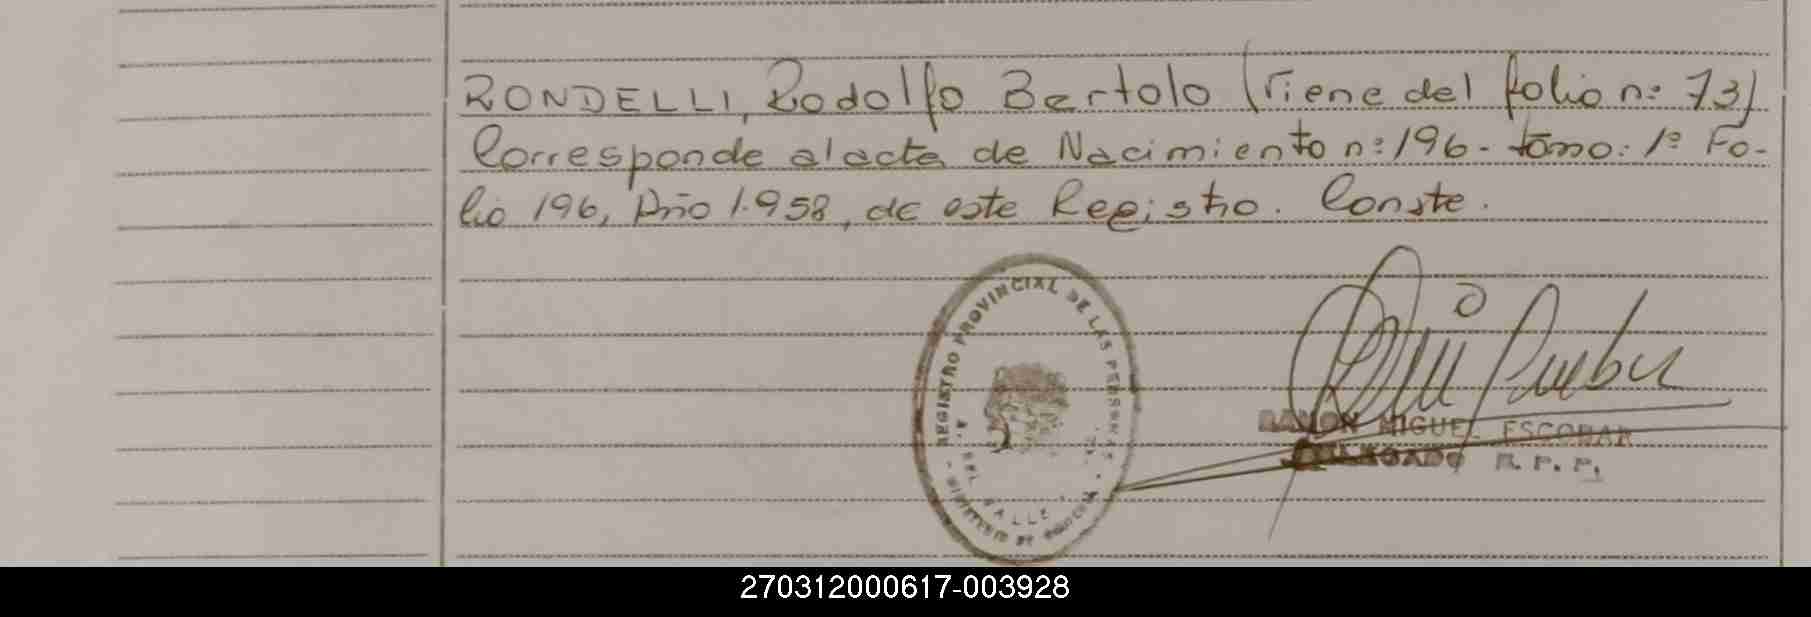 RONDELLI, Rodolfo Bertolo (Viene del folio n: 73)
Corresponde al acta de Nacimiento n: 196- tomo: 1º Fo-
lio 196, Año 1.958, de este Registro. Conste.
REGISTRO PROVINCIAL DE LAS PERSONAS
DEL VALLE
RAMON MIGUEL ESCOBAR
DELEGADO R. P. P.
270312000617-003928